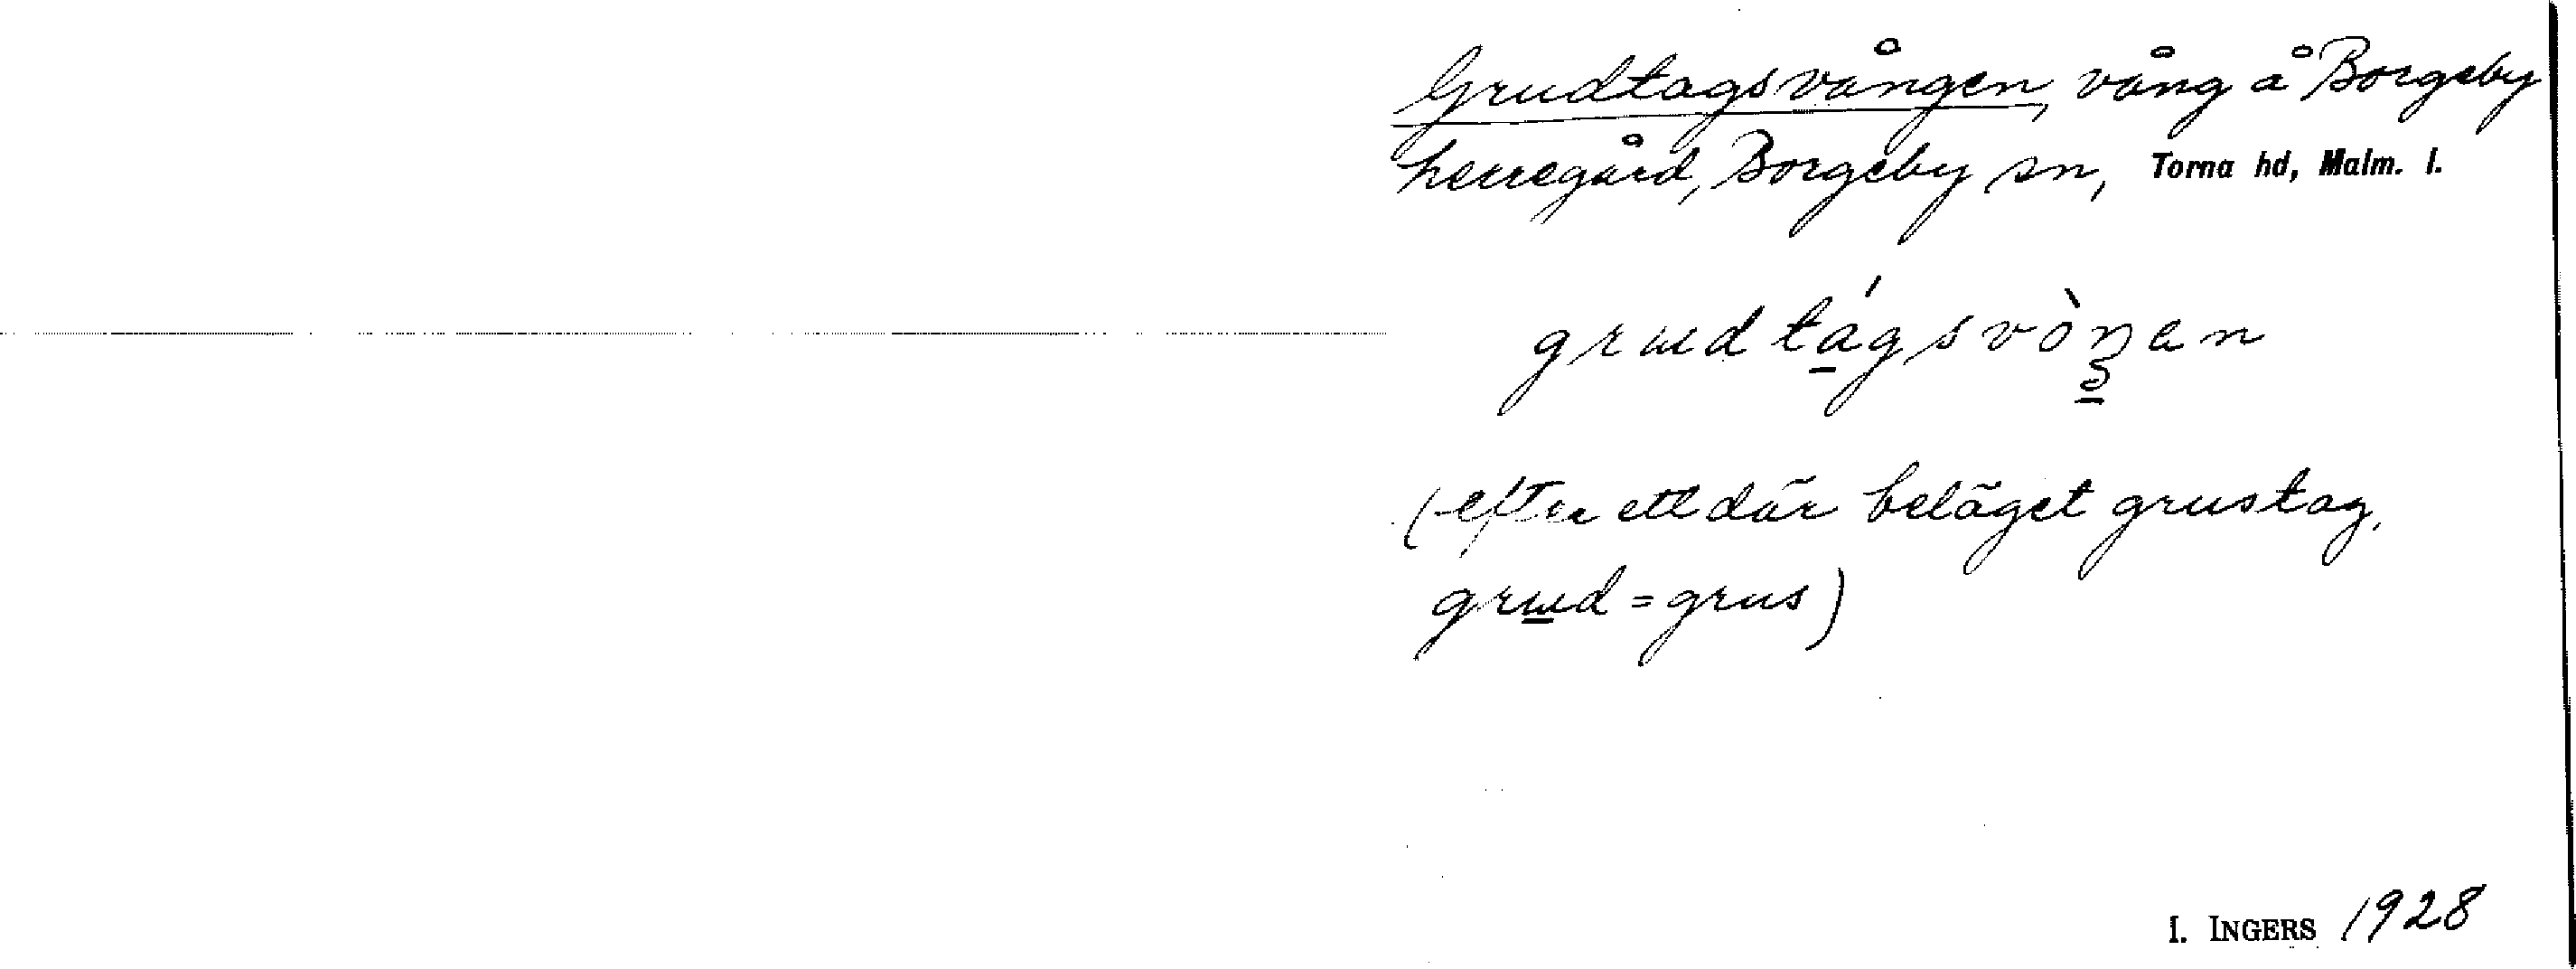 Grudtagsvången, vång å Borgeby
herregård, Borgeby sn, Torna hd, Malm. l.
grɯdtágsvòŋen
(efter ett där beläget grustag,
grɯd = grus)
I. INGERS 1928